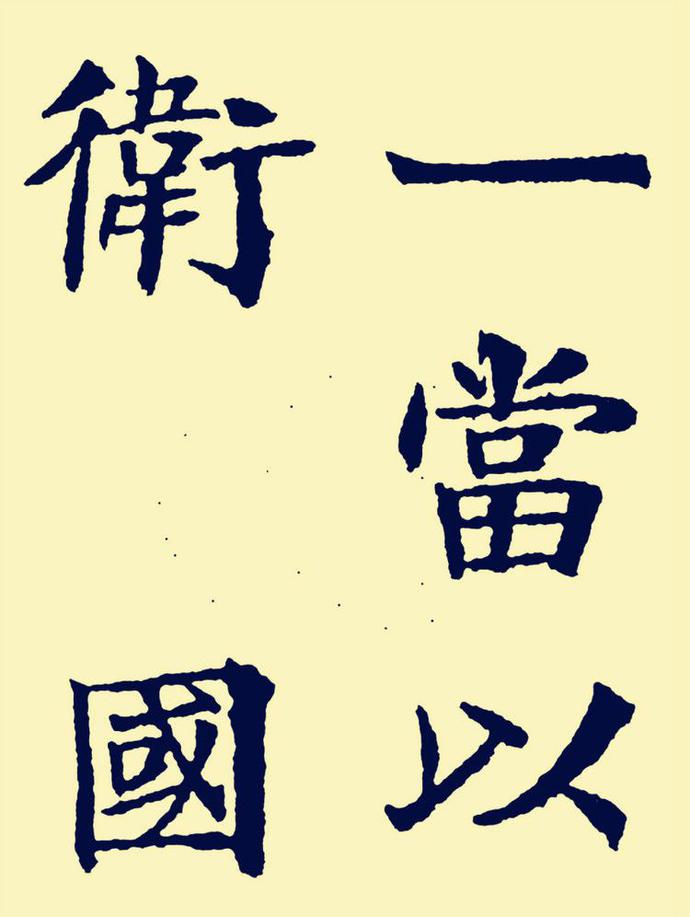 一當以
衛國